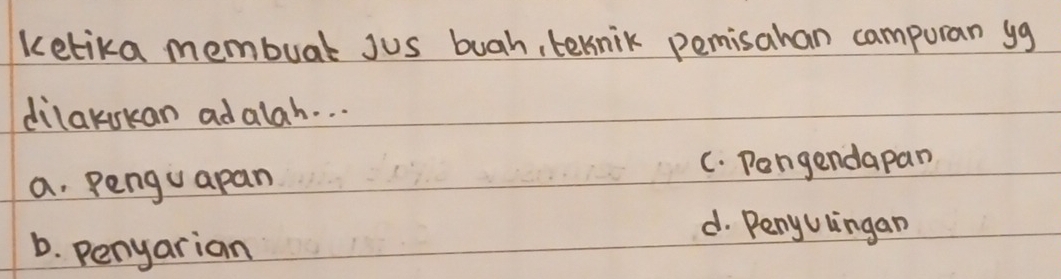 Ketika membuat Jus buah, teknik pemisahan campuran yg
dilakukan adalah...
a. Penguapan
c. Pengendapan
b. Penyarian
d. Penyulingan